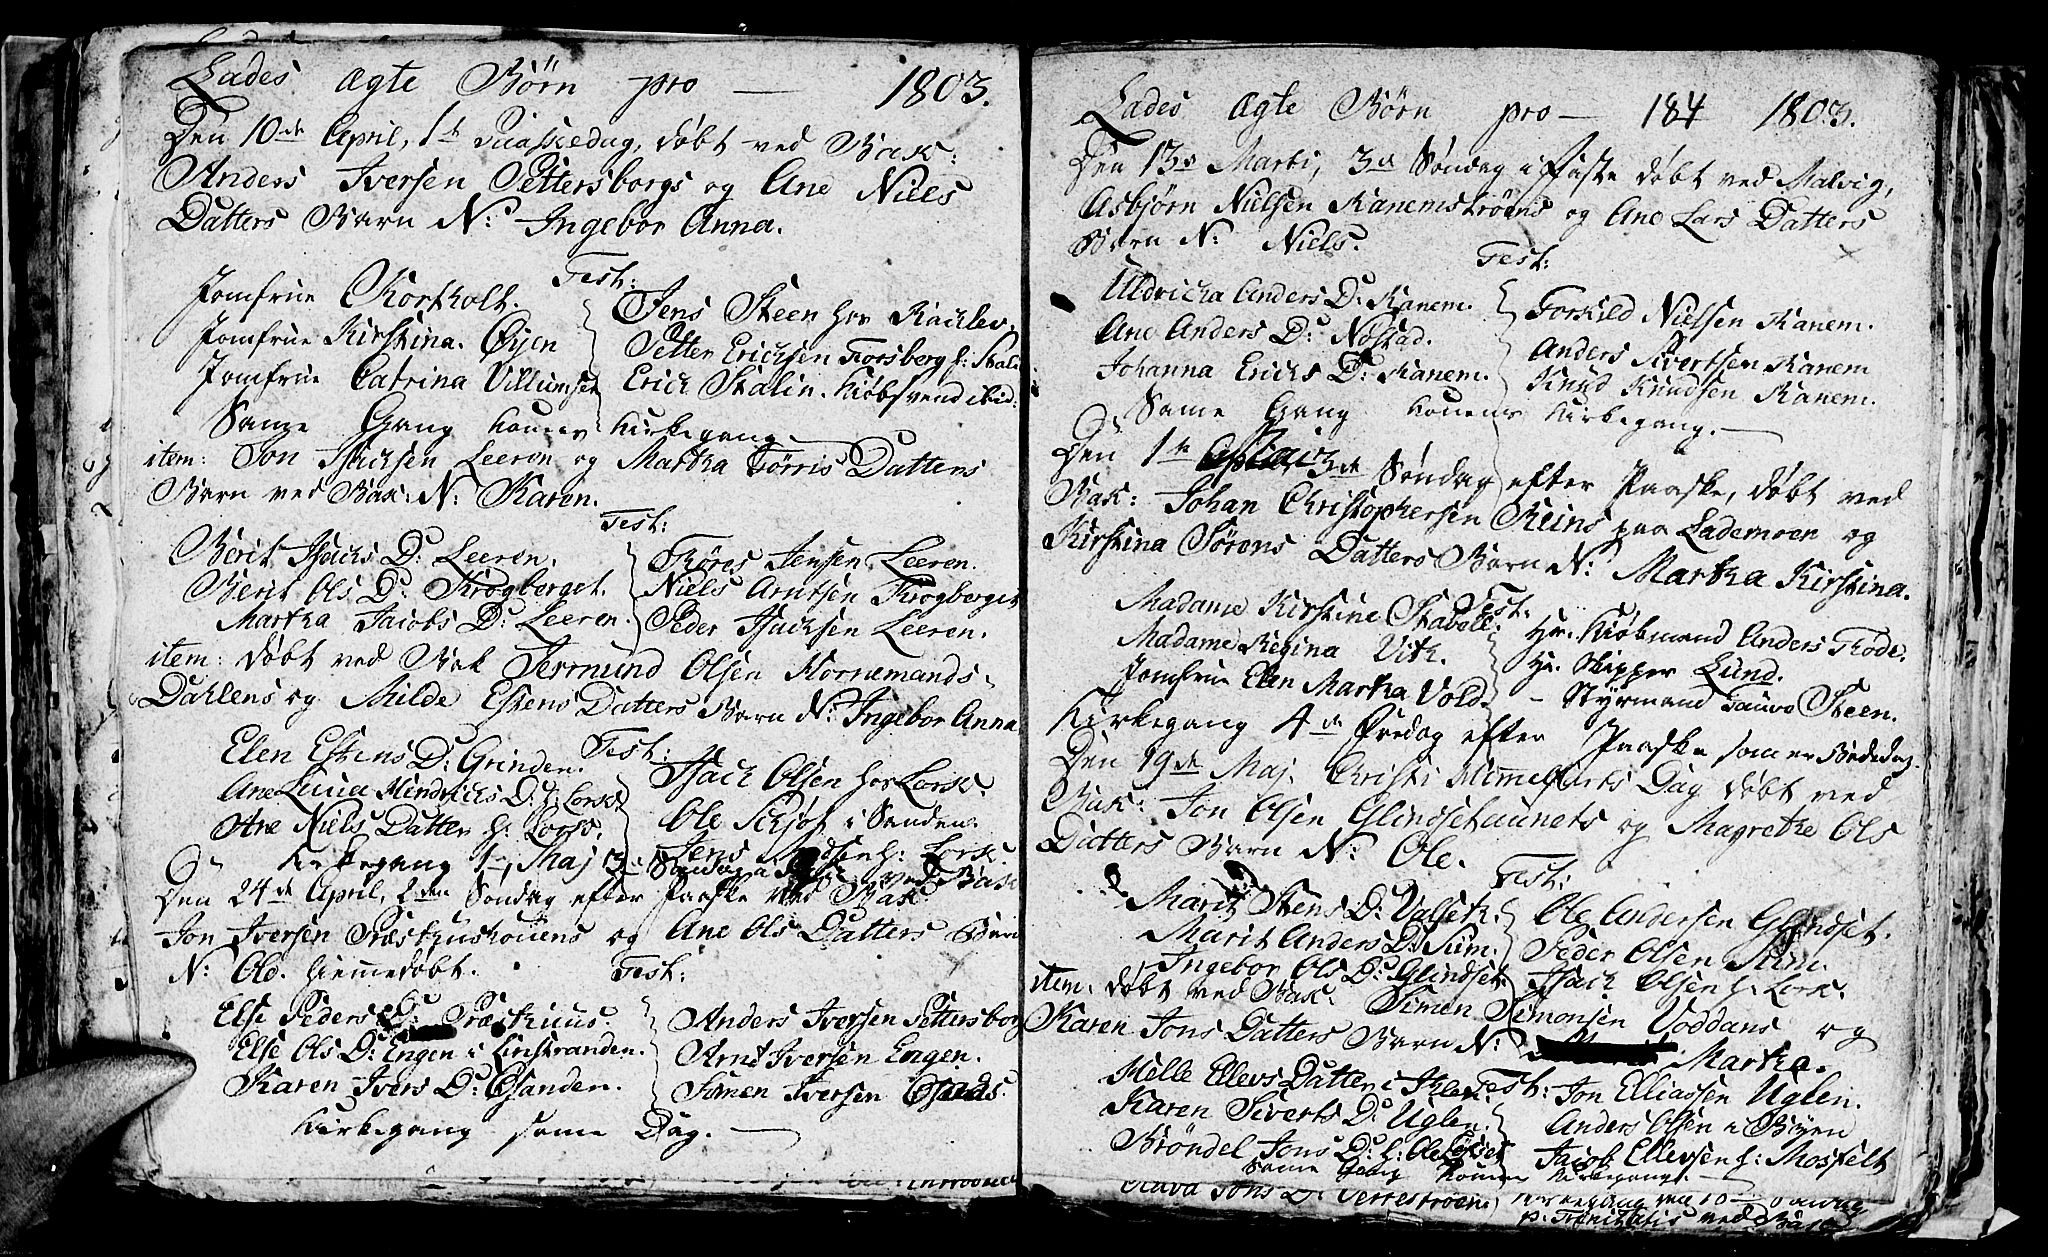 Lades ægte Börn pro — 1803.
Den 10de April, 1te Paaskedag, döbt ved Bak:
Anders Iversen Pettersborgs og Ane Niels
Datters Barn N: Ingebor Anna.
Test:
Jomfrue Kortholt.
Jomfrue Kirstina Öyen
Jomfrue Catrina Villumsen
Jens Steen hos
Petter Ericksen Forsberg h: Stalin
Erick Stalin. Kiöbsvend
Same Gang konens Kirkegang
item: Jon Isacksen Leeren og Martha Törris Datters
Barn ved Bak: N: Karen.
Test:
Berit Isachs D: Leeren.
Berit Ols D: Krogberget.
Martha Jacobs D: Leeren.
Töres Jensen Leeren.
Niels Arntsen Krogberget
Peder Isacksen Leeren.
item: döbt ved Bak Jermund Olsen Hornemands-
Dahlens og Milde Estens Datters Barn N: Ingebor Anna
Test:
Elen Estens D: Grinden.
Ane Lucia Hindrichs D: h: Lorck
Ane Niels Datter h: Lorck.
Isach Olsen hos Lorck.
Ole i Sanden.
Jens h: Lorck.
Kirkegang 1te Maj 3de Söndag ved Bak
Den 24de April, 2den Söndag efter Paaske ved Bak:
Jon Iversen Præsthushouens og Ane Ols Datters Barn
N: Ole. hiemmedöbt.
Test:
Else Peders D: Præsthuus
Else Ols D: Engen i Linstranden.
Karen Ivers D: Öfanden.
Anders Iversen Pettersborg
Arnt Iversen Engen.
Simen Iversen
Kirkegang same Dag. —
Lades ægte Börn pro — 184 1803.
Den 13de Marti, 3de Söndag i Faste döbt ved Malvig,
Asbjörn Nielsen Kanemströens og Ane Lars Datters
Barn N: Niels.
Test:
Uldricha Anders D: Kanem.
Ane Anders D: Nöstad.
Johanna Erichs D: Kanem.
Torkild Nielsen Kanem.
Anders Sivertsen Kanem
Knud Knudsen Kanem.
Same Gang konens Kirkegang. —
Den 1te Maj 3de Söndag efter Paaske, döbt ved
Bak: Johan Christophersen Reins paa Lademoen og
Kirstina Sörens Datters Barn N: Martha Kirstina.
Test:
Madame Kirstine Stabell.
Madame Regina Vith.
Jomfrue Elen Martha Vold.
Hr. Kiöbmand Anders Rode.
Hr. Skipper Lund.
— Styrmand Steen.
Kirkegang 4de Fredag efter Paaske som er Bededag.
Den 19de Maj. Christi Himmelfarts Dag döbt ved
Bak: Jon Olsen Glindsethaunets og Magrethe Ols
Datters Barn N: Ole.
Test:
Marit Stens D: Valseth.
Marit Anders D: Sim.
Ingebor Ols D: Glindset.
Ole Andersen Glindset.
Peder Olsen Sim.
Isach Olsen h: Lorck.
item: döbt ved Bak: Simen Simonsen Voddans og
Karen Jons Datters Barn N: Martha.
Test:
Mille Ellevs Datter i
Karen Siverts D: Uglen.
Bröndel Jons D: h: Ole
Jon Elliassen Uglen.
Anders Olsen i Böyen
Jacob Ellevsen h: Mosfelt
Same Gang konens Kirkegang. —
Jons D: Verreströen.
p. Trinitatis ved Bak